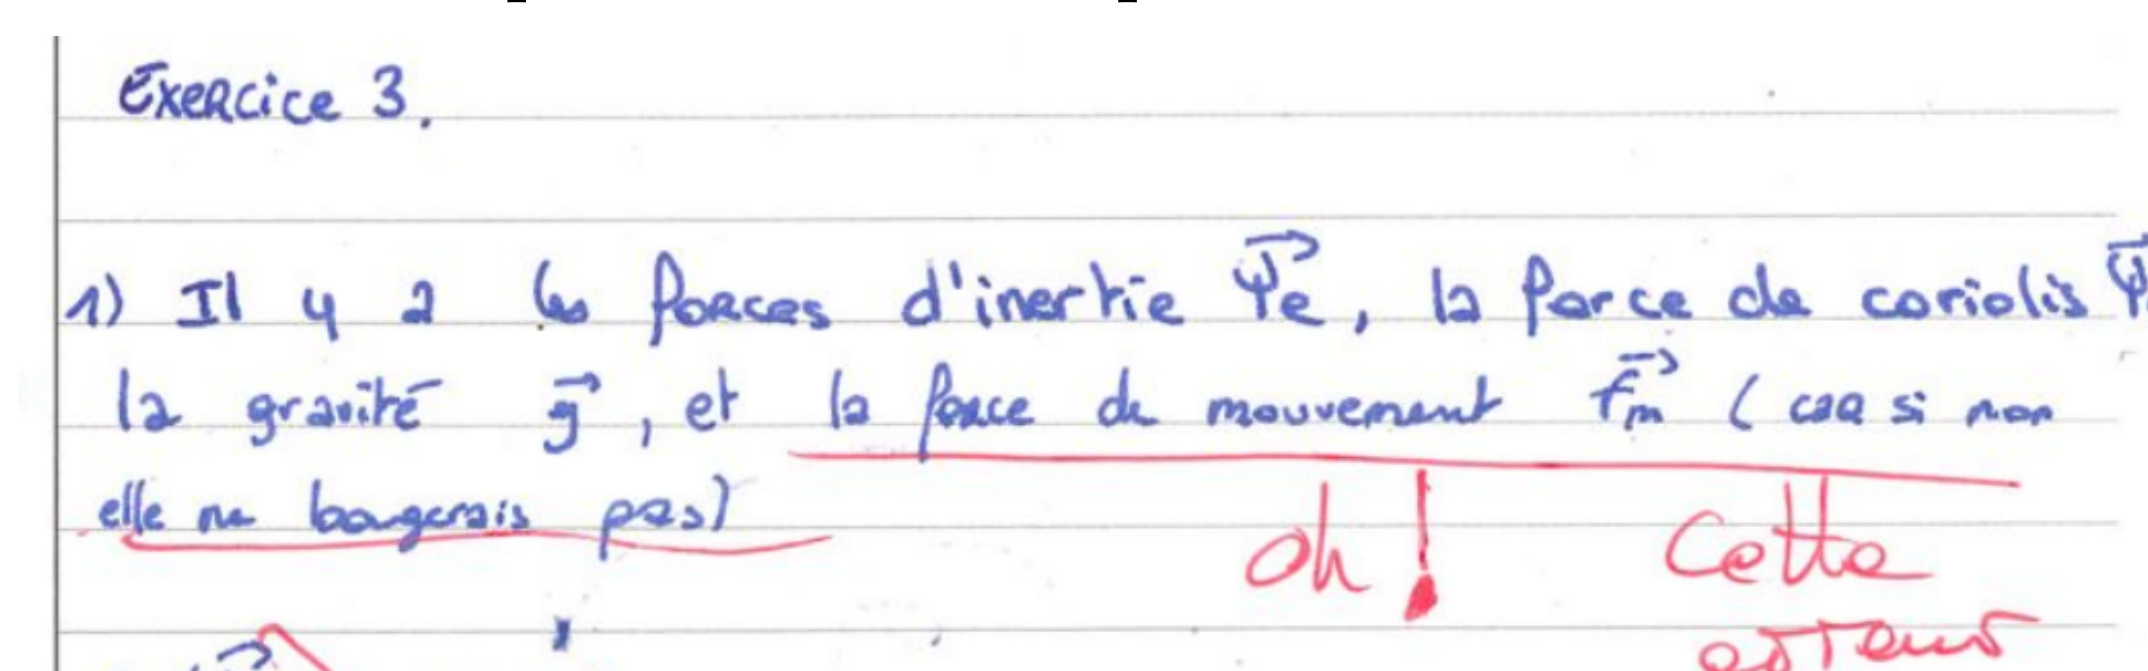 Exercice 3.
1) Il y a les forces d'inertie Ψe, la force de coriolis Ψ
la gravité g, et la force de mouvement fm (car si non
elle ne bougerais pas)
oh ! Cette
erreur